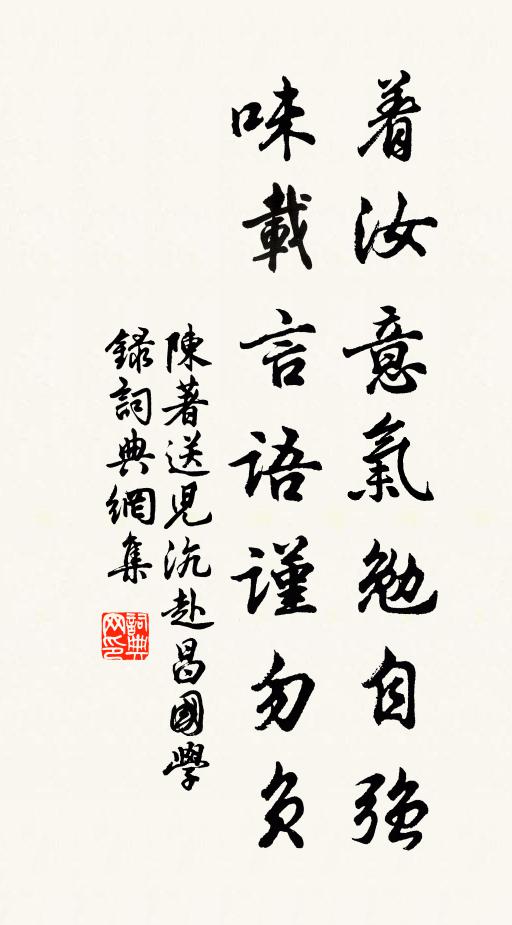 着汝意氣勉自強
味載言語謹勿負
陳著送児沆赴昌國學
録詞典網集
詞典网印